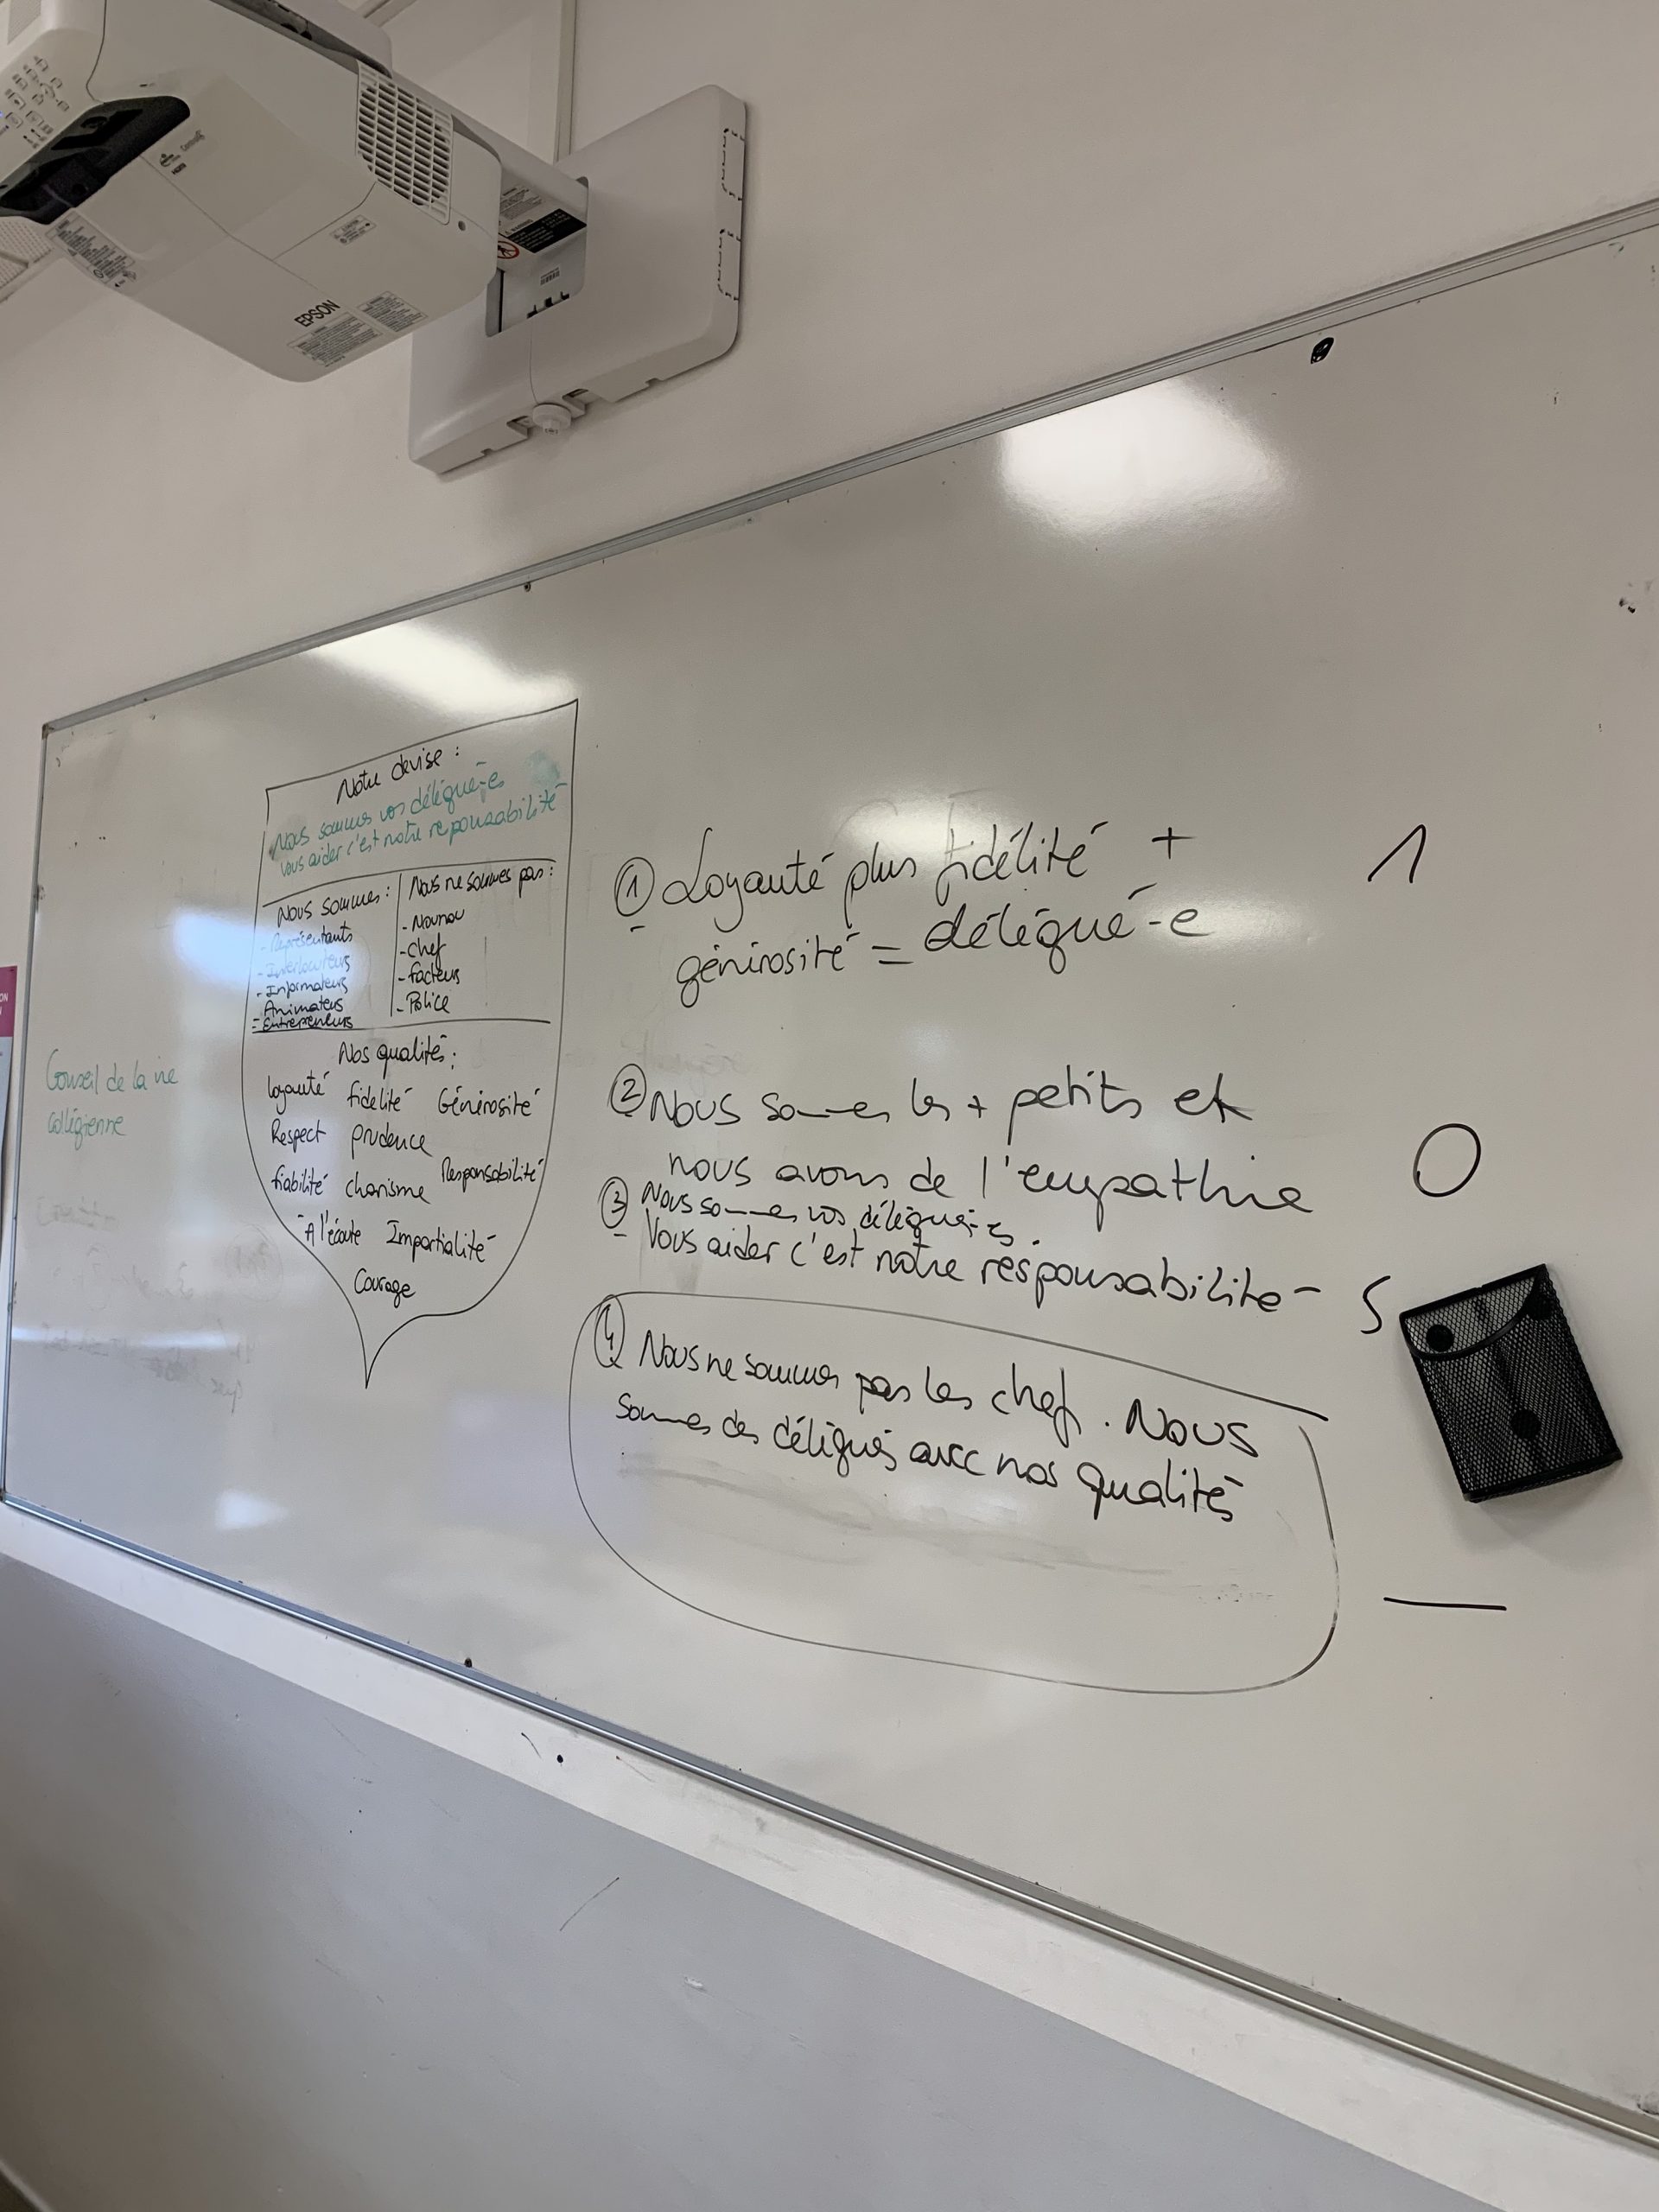 EPSON
Notre devise :
Nous sommes vos délégué-e-s
vous aider c'est notre reponsabilité
Nous sommes :
- Représentants
- Interlocuteurs
- Informateurs
- Animateurs
- Entrepreneurs
Nous ne sommes pas :
- Nounou
- Chef
- Facteurs
- Police
Nos qualités :
loyauté fidelité Générosité
Respect prudence
fiabilité charisme Responsabilité
- A l'écoute Impartialité
Courage
Conseil de la vie
collégienne
① Loyauté plus fidélité + 1
générosité = délégué-e
② Nous sommes les + petits et
nous avons de l'empathie 0
③ Nous sommes vos délégué-e-s.
Vous aider c'est notre responsabilité 5
④ Nous ne sommes pas les chefs. Nous
sommes des délégués avec nos qualités
—